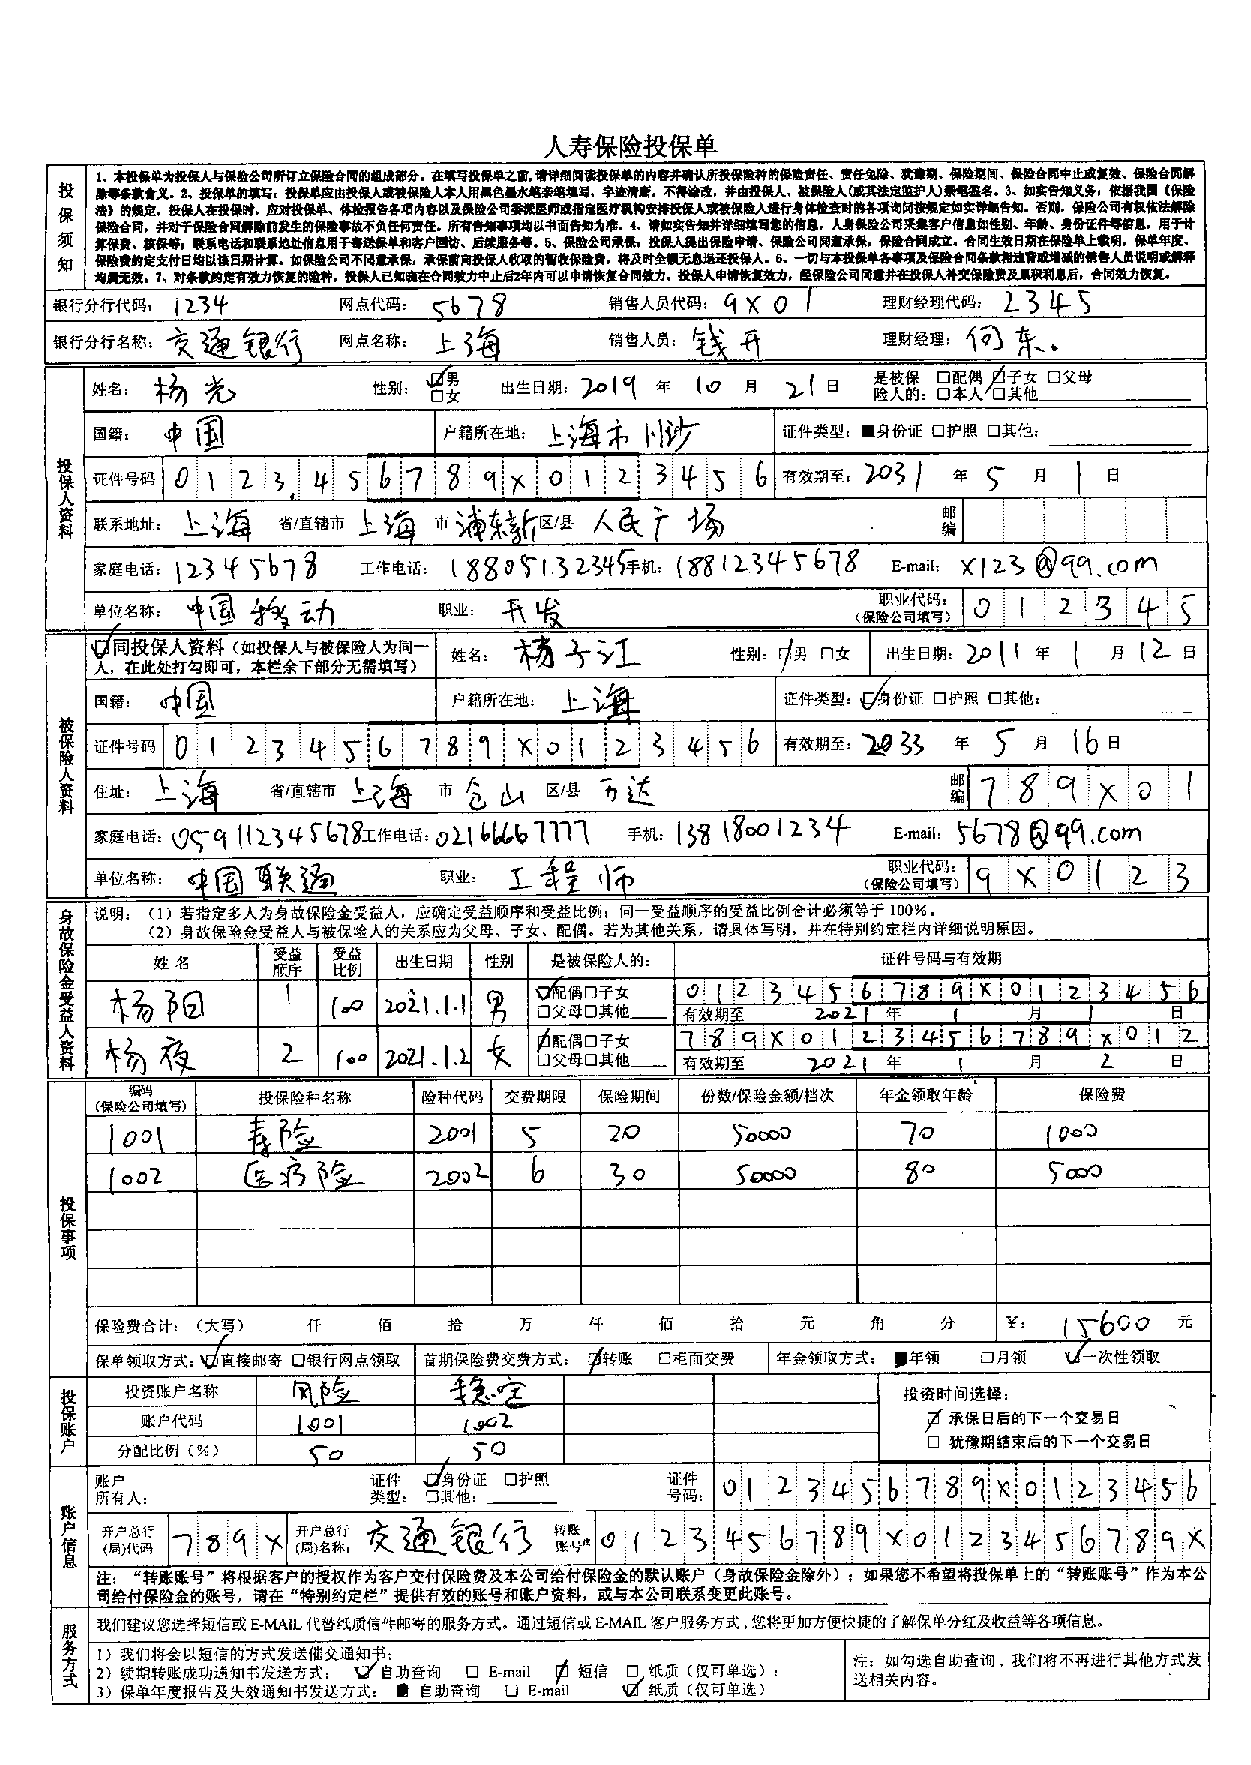 人寿保险投保单
投保须知
1、本投保单为投保人与保险公司所订立保险合同的组成部分。在填写投保单之前,请详细阅读投保单的内容并确认所投保险种的保险责任、责任免除、犹豫期、保险期间、保险合同中止或复效、保险合同解
除等条款含义。2、投保单的填写:投保单应由投保人或被保险人本人用黑色墨水笔亲笔填写、字迹清晰,不得涂改,并由投保人、被保险人(或其法定监护人)亲笔签名。3、如实告知义务:依据我国《保险
法》的规定,投保人在投保时,应对投保单、体检报告各项内容以及保险公司委派医师或指定医疗机构安排投保人或被保险人进行身体检查时的各项询问按规定如实详细告知。否则,保险公司有权依法解除
保险合同,并对于保险合同解除前发生的保险事故不负任何责任。所有告知事项均以书面告知为准。4、请如实告知并详细填写您的信息,人身保险公司采集客户信息如性别、年龄、身份证件等信息,用于计
算保费、核保等;联系电话和联系地址信息用于寄送保单和客户回访、后续服务等。5、保险公司承保:投保人提出保险申请、保险公司同意承保,保险合同成立。合同生效日期在保险单上载明,保单年度、
保险费约定支付日均以该日期计算。如保险公司不同意承保,承保前向投保人收取的暂收保险费,将及时全额无息退还投保人。6、一切与本投保单各事项及保险合同条款相违背或增减的销售人员说明或解释
均属无效。7、对条款约定有效力恢复的险种,投保人已知晓在合同效力中止后2年内可以申请恢复合同效力,投保人申请恢复效力,经保险公司同意并在投保人补交保险费及累积利息后,合同效力恢复。
银行分行代码: 1234 网点代码: 5678 销售人员代码: 9X01 理财经理代码: 2345
银行分行名称: 交通银行 网点名称: 上海 销售人员: 钱开 理财经理: 何东。
投保人资料
姓名: 杨光 性别: ☑男 □女 出生日期: 2019 年 10 月 21 日 是被保险人的: □配偶 ☑子女 □父母 □本人 □其他
国籍: 中国 户籍所在地: 上海市川沙 证件类型: ■身份证 □护照 □其他:
证件号码 0123456789X0123456 有效期至: 2031 年 5 月 1 日
联系地址: 上海 省/直辖市 上海 市 浦东新 区/县 人民广场 邮编
家庭电话: 12345678 工作电话: 18805132345 手机: 18812345678 E-mail: x123@qq.com
单位名称: 中国移动 职业: 开发 职业代码:(保险公司填写) 012345
被保险人资料
☑同投保人资料(如投保人与被保险人为同一人,在此处打勾即可,本栏余下部分无需填写) 姓名: 杨子江 性别: ☑男 □女 出生日期: 2011 年 1 月 12 日
国籍: 中国 户籍所在地: 上海 证件类型: ☑身份证 □护照 □其他:
证件号码 0123456789X0123456 有效期至: 2033 年 5 月 16 日
住址: 上海 省/直辖市 上海 市 仓山 区/县 万达 邮编 789X01
家庭电话: 059112345678 工作电话: 02166667777 手机: 13818001234 E-mail: 5678@qq.com
单位名称: 中国联通 职业: 工程师 职业代码:(保险公司填写) 9X0123
身故保险金受益人资料
说明:(1)若指定多人为身故保险金受益人,应确定受益顺序和受益比例;同一受益顺序的受益比例合计必须等于100%。
(2)身故保险金受益人与被保险人的关系应为父母、子女、配偶。若为其他关系,请具体写明,并在特别约定栏内详细说明原因。
姓名 受益顺序 受益比例 出生日期 性别 是被保险人的: 证件号码与有效期
杨阳 1 100 2021.1.1 男 ☑配偶□子女 □父母□其他 0123456789X0123456
有效期至 2021 年 1 月 1 日
杨夜 2 100 2021.1.2 女 ☑配偶□子女 □父母□其他 789X0123456789X012
有效期至 2021 年 1 月 2 日
投保事项
编码(保险公司填写) 投保险种名称 险种代码 交费期限 保险期间 份数/保险金额/档次 年金领取年龄 保险费
1001 寿险 2001 5 20 50000 70 1000
1002 医疗险 2002 6 30 50000 80 5000
保险费合计:(大写) 仟 佰 拾 万 仟 佰 拾 元 角 分 ¥: 15600 元
保单领取方式: ☑直接邮寄 □银行网点领取 首期保险费交费方式: ☑转账 □柜面交费 年金领取方式: ■年领 □月领 ☑一次性领取
投保账户
投资账户名称 风险 稳定
账户代码 1001 1002
分配比例(%) 50 50
投资时间选择:
☑ 承保日后的下一个交易日
□ 犹豫期结束后的下一个交易日
账户信息
账户所有人: 证件类型: ☑身份证 □护照 □其他: 证件号码: 0123456789X0123456
开户总行(局)代码 789X 开户总行(局)名称: 交通银行 转账账号 0123456789X0123456789X
注:“转账账号”将根据客户的授权作为客户交付保险费及本公司给付保险金的默认账户(身故保险金除外);如果您不希望将投保单上的“转账账号”作为本公
司给付保险金的账号,请在“特别约定栏”提供有效的账号和账户资料,或与本公司联系变更此账号。
服务方式
我们建议您选择短信或E-MAIL代替纸质信件邮寄的服务方式。通过短信或E-MAIL客户服务方式,您将更加方便快捷的了解保单分红及收益等各项信息。
1)我们将会以短信的方式发送催交通知书;
2)续期转账成功通知书发送方式: ☑自助查询 □ E-mail ☑ 短信 □ 纸质(仅可单选);
3)保单年度报告及失效通知书发送方式: ■ 自助查询 □ E-mail ☑ 纸质(仅可单选)
注:如勾选自助查询,我们将不再进行其他方式发
送相关内容。